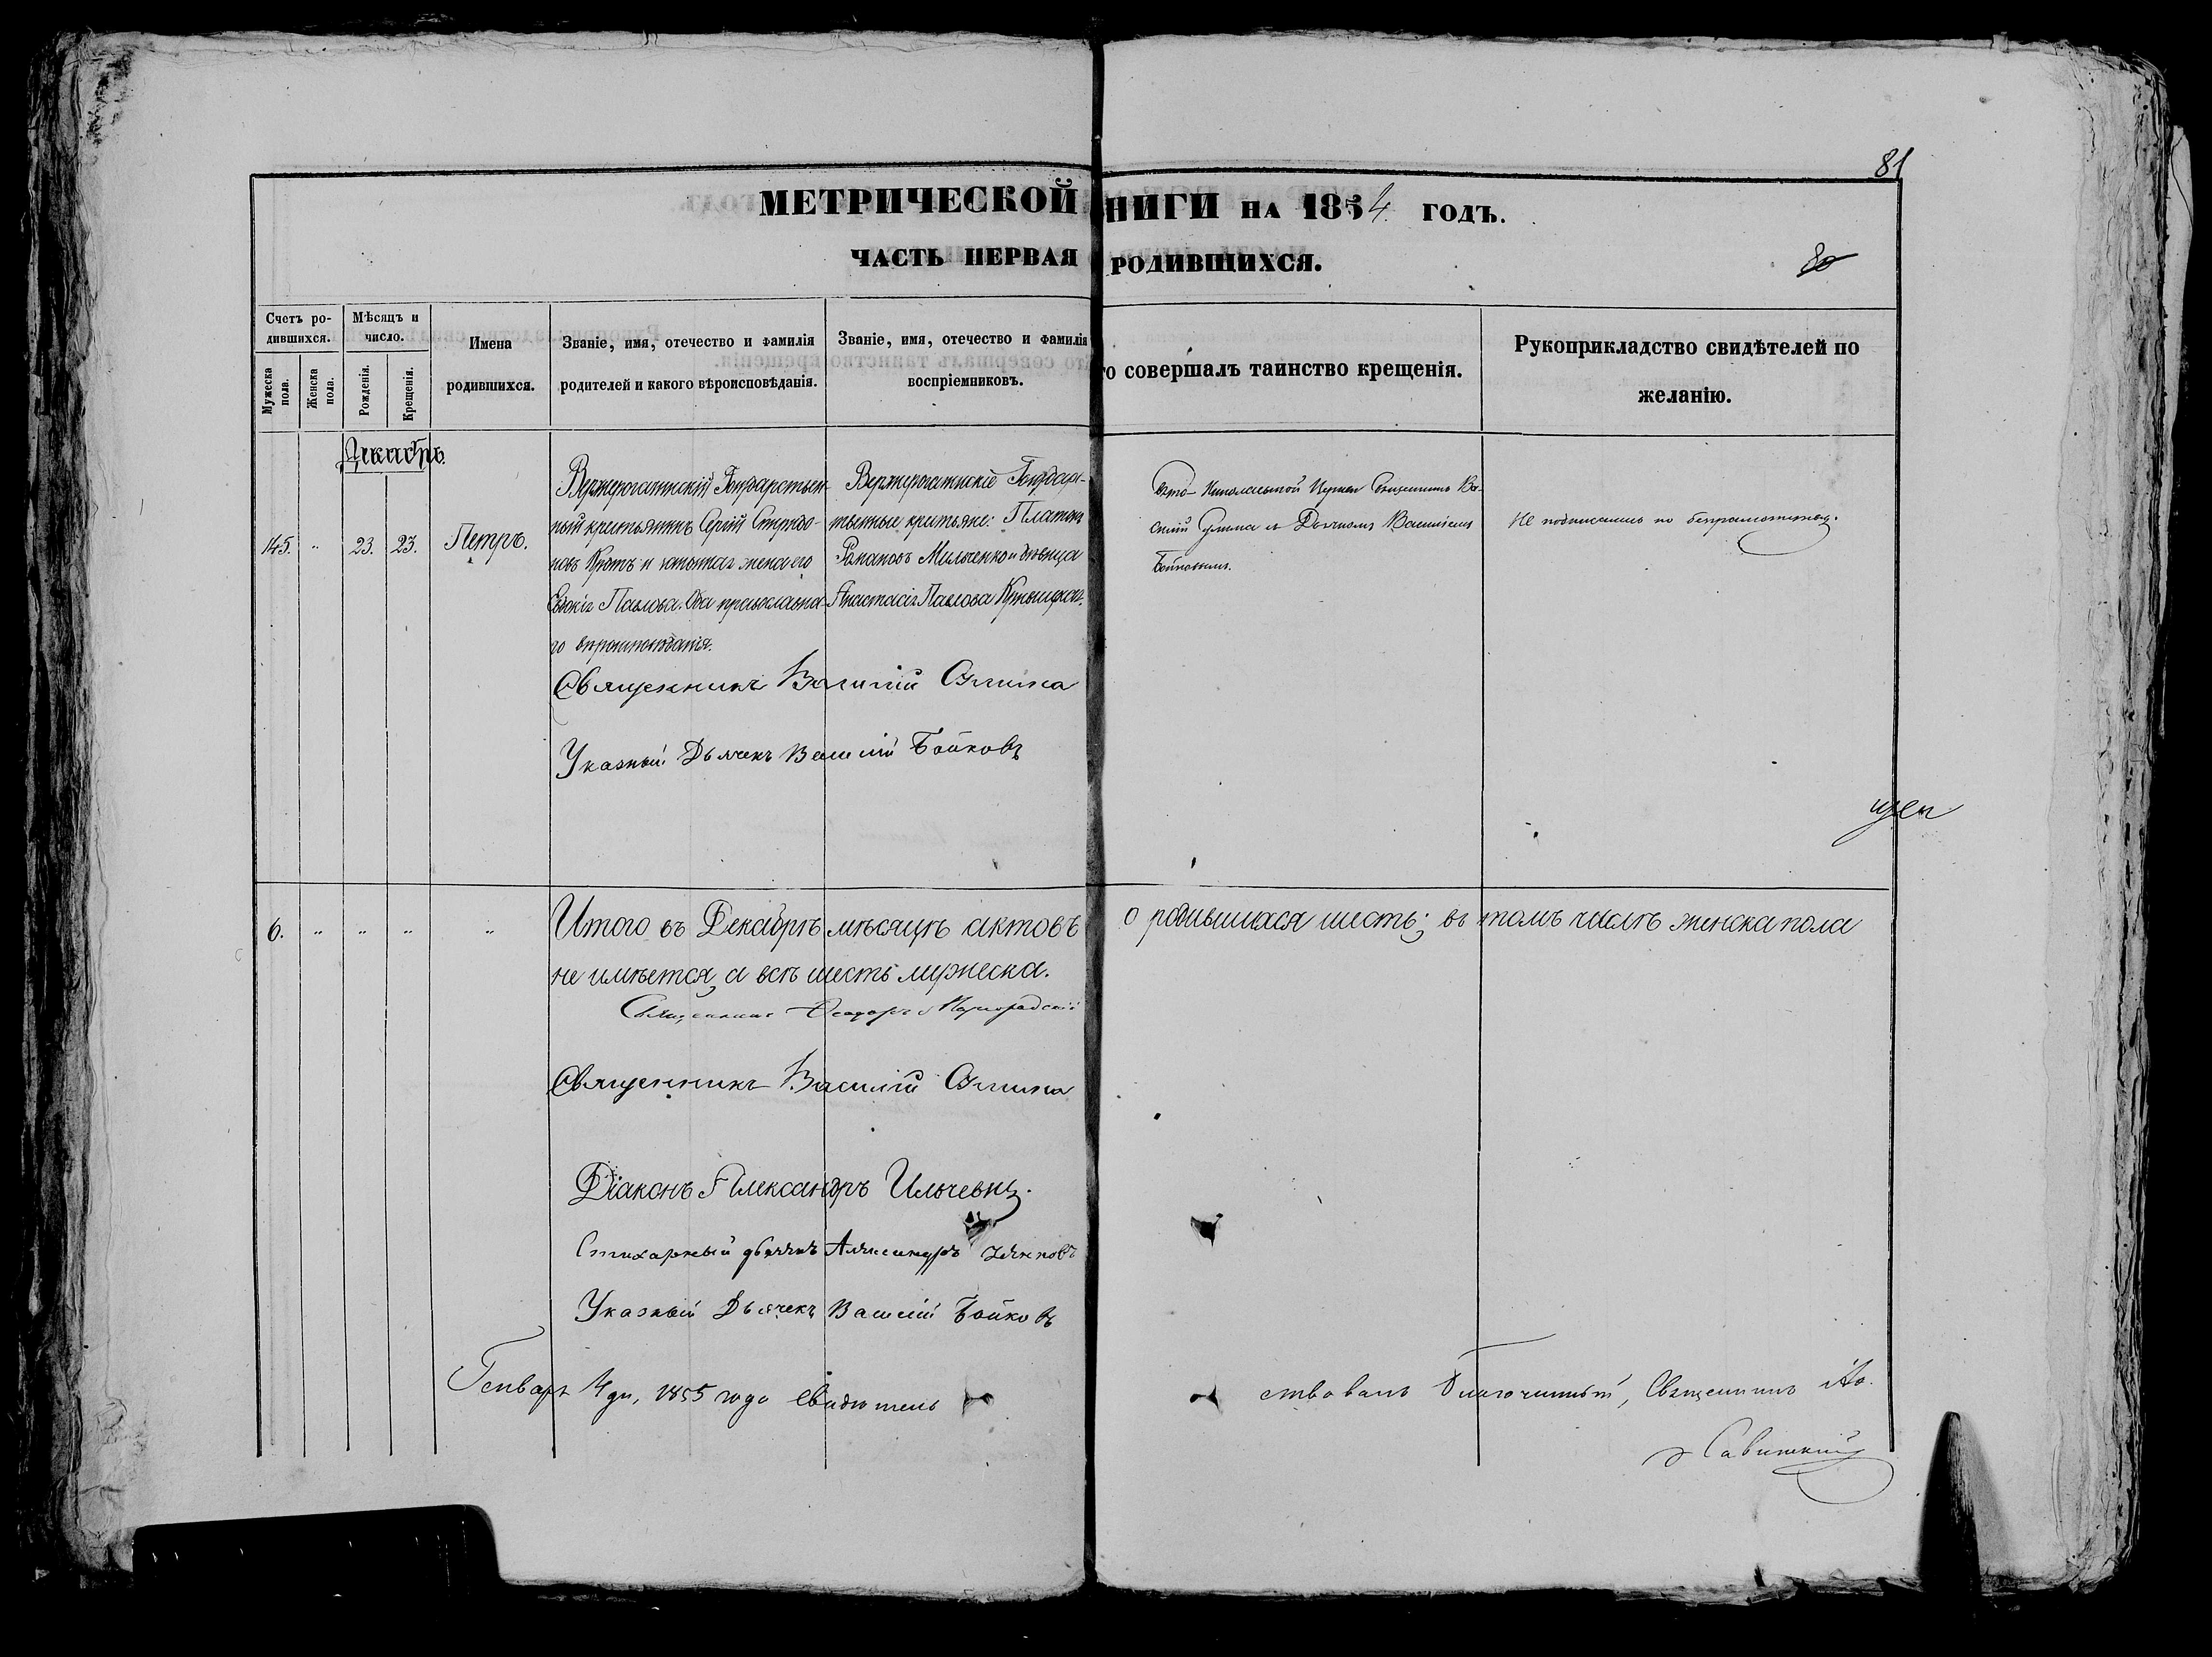 81
МЕТРИЧЕСКОЙ НИГИ НА 1854 ГОДЪ.
ЧАСТЬ ПЕРВАЯ РОДИВШИХСЯ.
80
Счетъ ро-
дившихся.
Мужеска пола.
Женска пола.
Мѣсяцъ и
число.
Рожденія.
Крещенія.
Имена
родившихся.
Званіе, имя, отечество и фамилія
родителей и какого вѣроисповѣданія.
Званіе, имя, отечество и фамилія
воспріемниковъ.
то совершалъ таинство крещенія.
Рукоприкладство свидѣтелей по
желанію.
Декабрь.
145. " 23. 23. Петръ.
Государствен-
ный крестьянинъ Сергій Спиридо-
новъ Кротъ и законная жена его
Евдокія Павлова. Оба православна-
го вѣроисповѣданія.
Государ-
ственные крестьяне: Платонъ
Романовъ Мильченко и дѣвица
Анастасія Павлова
Свято-Николаевской Церкви Священникъ Ва-
силій Слита съ Дьячкомъ Василіемъ
Бойковымъ.
Не подписались по безграмотству.
Священникъ Василій
Указный Дьячекъ Василій Бойковъ
щен
6. " " " "
Итого въ Декабрѣ мѣсяцѣ актовъ о родившихся шесть; въ томъ числѣ женска пола
не имѣется, а всѣ шесть мужеска.
Священникъ Ѳеодоръ
Священникъ Василій
Діаконъ Александръ Ильчевъ.
Стихарный дьячекъ Александръ
Указный Дьячекъ Василій Бойковъ
Генваря 4 дн, 1855 года свидѣтель ствовалъ Благочинный, Священникъ
Савинскій